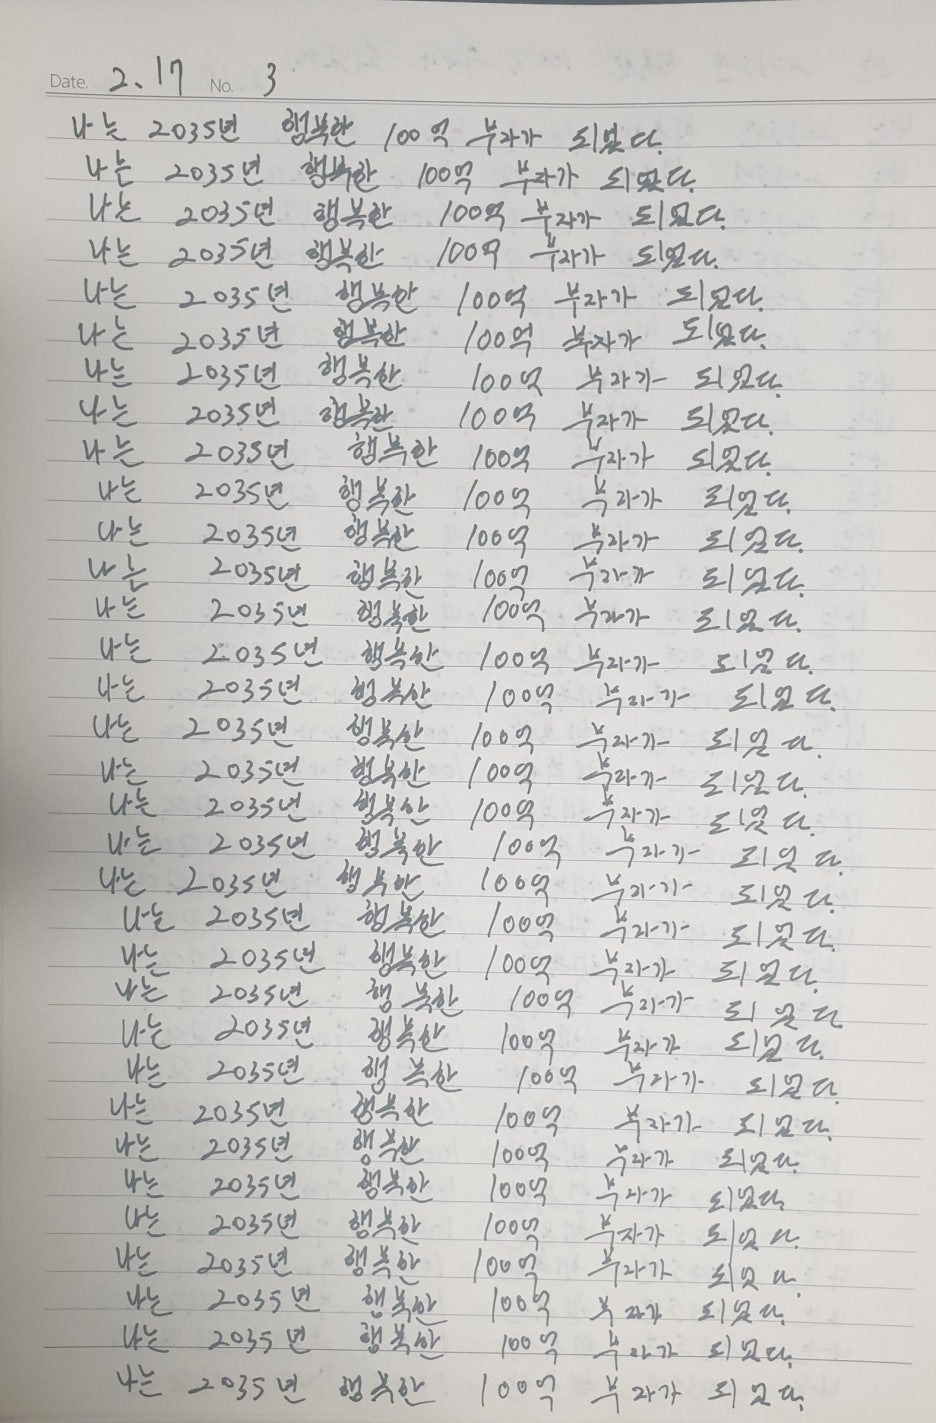 Date. 2. 17 No. 3
나는 2035년 행복한 100억 부자가 되었다.
나는 2035년 행복한 100억 부자가 되었다.
나는 2035년 행복한 100억 부자가 되었다.
나는 2035년 행복한 100억 부자가 되었다.
나는 2035년 행복한 100억 부자가 되었다.
나는 2035년 행복한 100억 부자가 되었다.
나는 2035년 행복한 100억 부자가 되었다.
나는 2035년 행복한 100억 부자가 되었다.
나는 2035년 행복한 100억 부자가 되었다.
나는 2035년 행복한 100억 부자가 되었다.
나는 2035년 행복한 100억 부자가 되었다.
나는 2035년 행복한 100억 부자가 되었다.
나는 2035년 행복한 100억 부자가 되었다.
나는 2035년 행복한 100억 부자가 되었다.
나는 2035년 행복한 100억 부자가 되었다.
나는 2035년 행복한 100억 부자가 되었다.
나는 2035년 행복한 100억 부자가 되었다.
나는 2035년 행복한 100억 부자가 되었다.
나는 2035년 행복한 100억 부자가 되었다.
나는 2035년 행복한 100억 부자가 되었다.
나는 2035년 행복한 100억 부자가 되었다.
나는 2035년 행복한 100억 부자가 되었다.
나는 2035년 행복한 100억 부자가 되었다
나는 2035년 행복한 100억 부자가 되었다.
나는 2035년 행복한 100억 부자가 되었다.
나는 2035년 행복한 100억 부자가 되었다.
나는 2035년 행복한 100억 부자가 되었다.
나는 2035년 행복한 100억 부자가 되었다.
나는 2035년 행복한 100억 부자가 되었다.
나는 2035년 행복한 100억 부자가 되었다.
나는 2035년 행복한 100억 부자가 되었다.
나는 2035년 행복한 100억 부자가 되었다.
나는 2035년 행복한 100억 부자가 되었다.